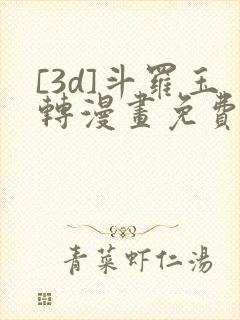 [3d]斗羅玉
轉漫畫免費
青菜虾仁湯